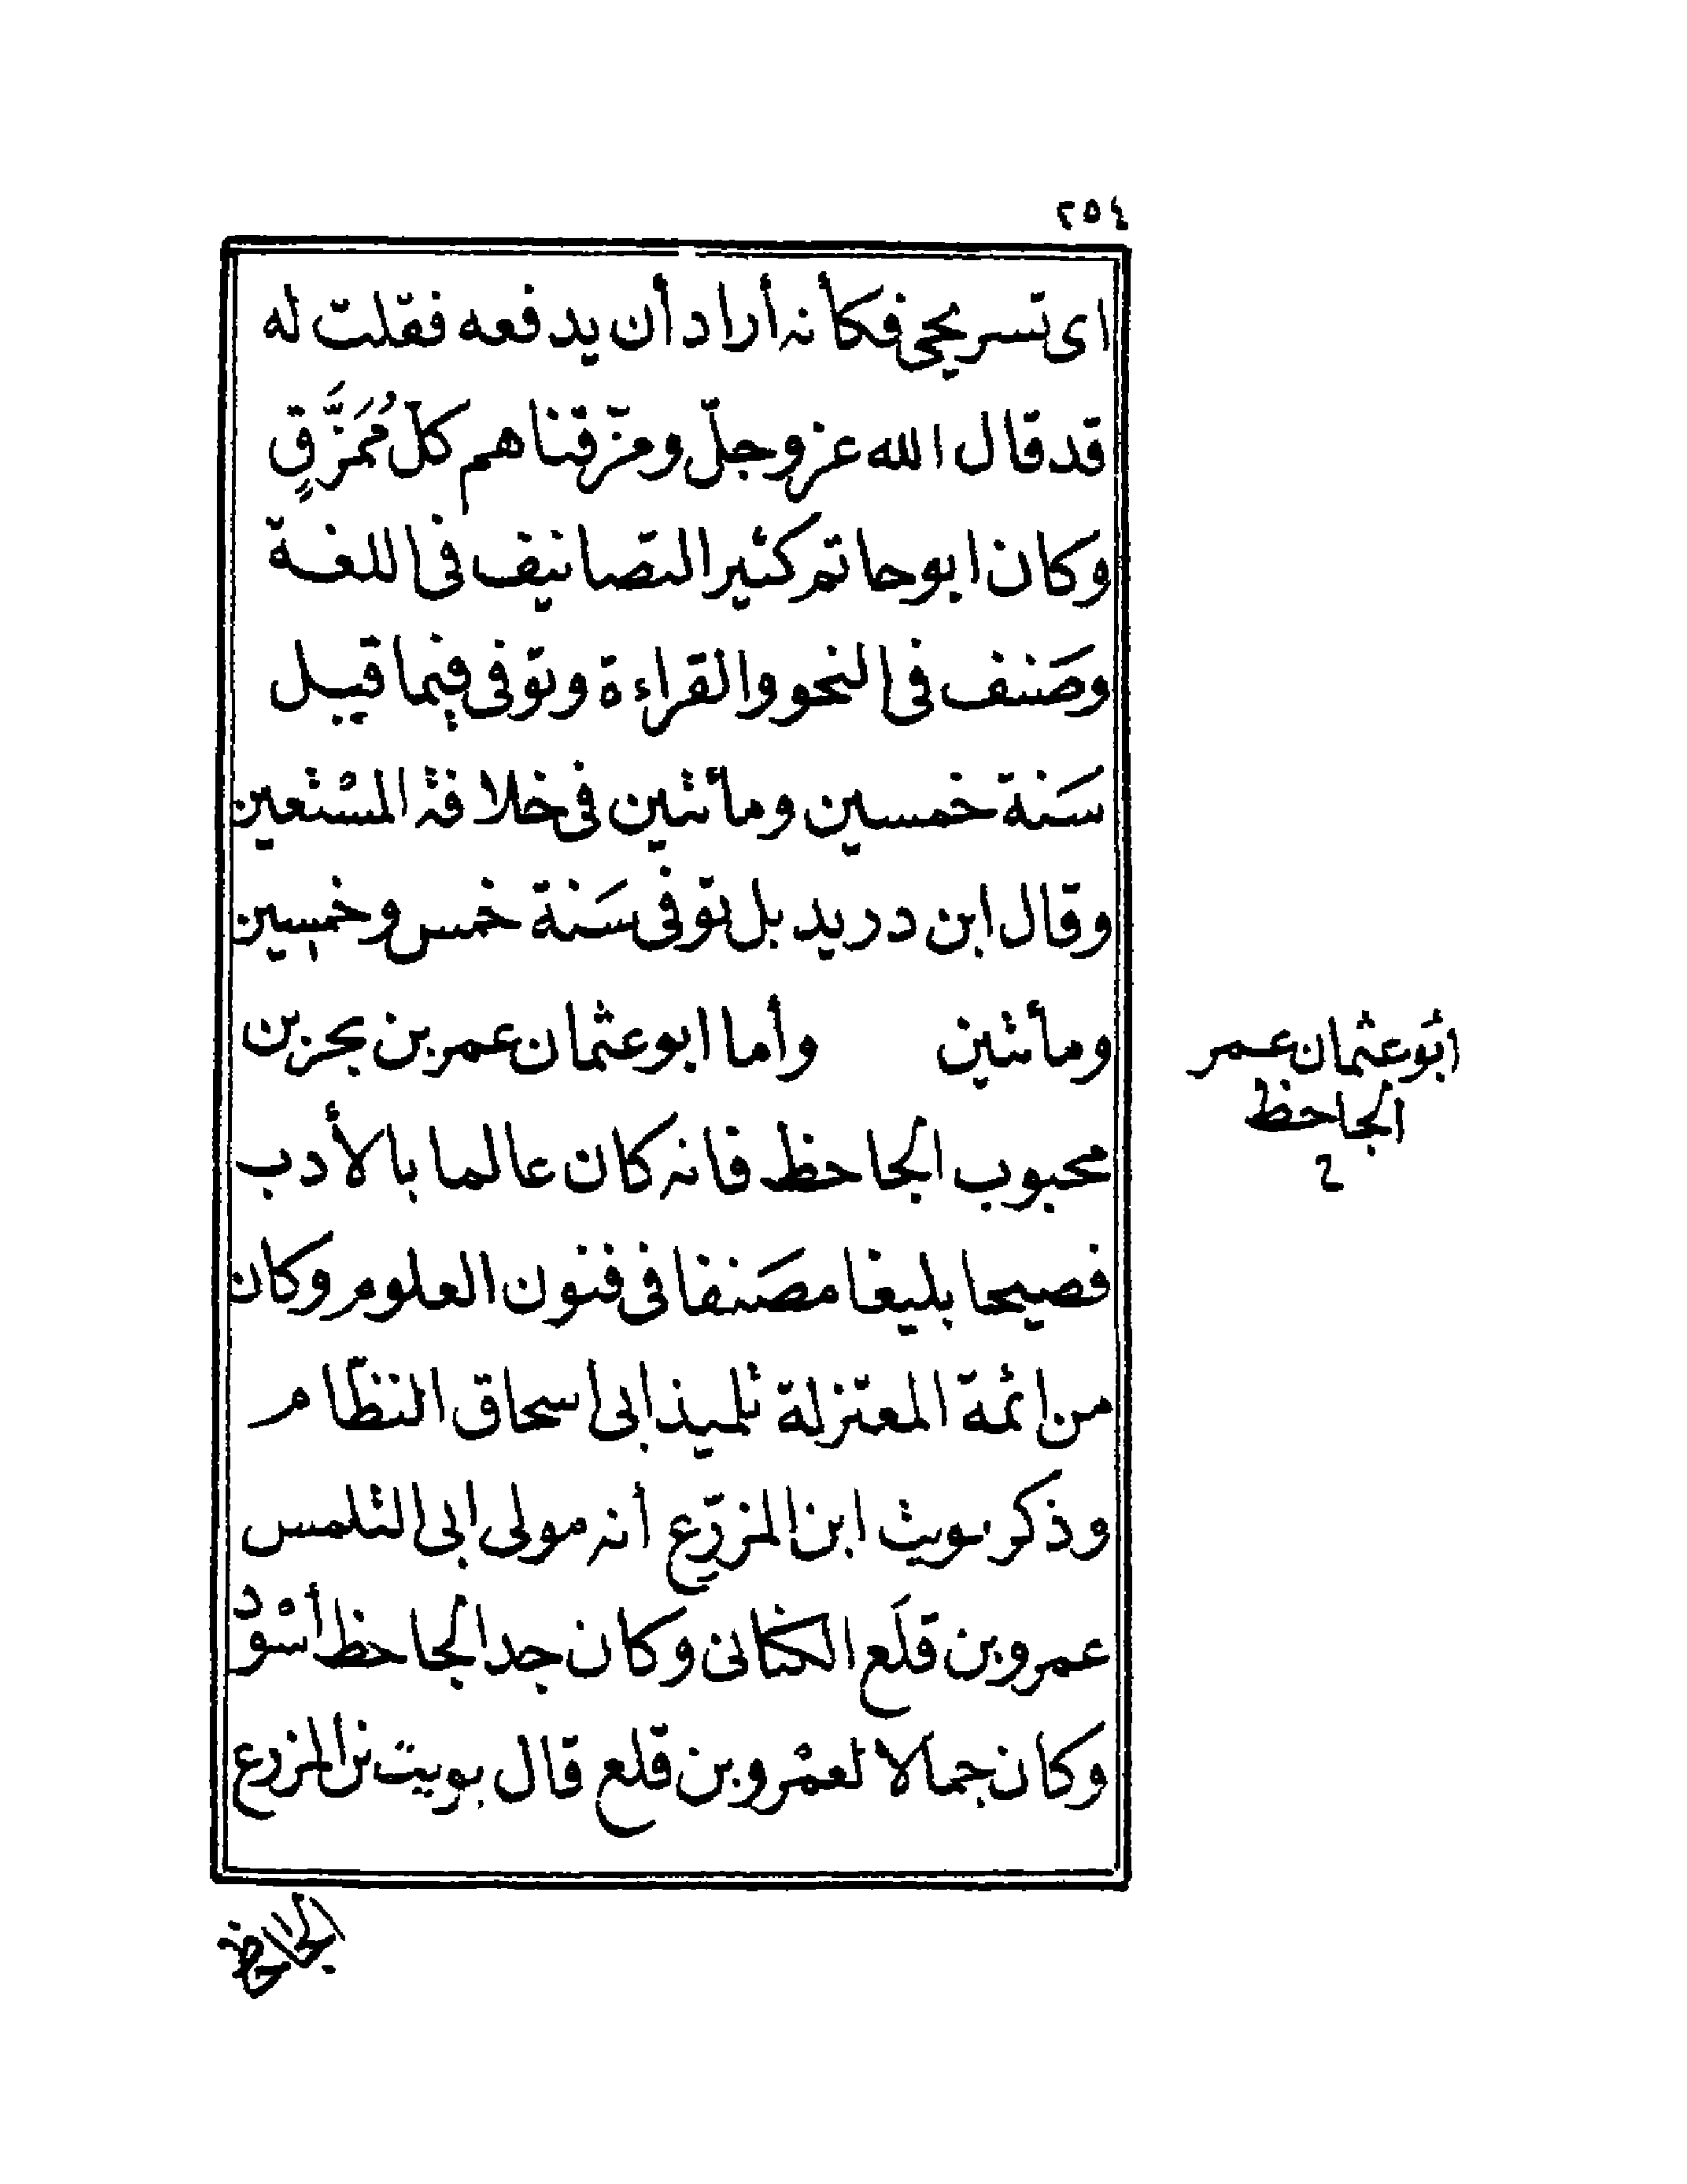 ٢٥٤
اى تسريحى فكأنه أراد أن يدفعه فقلت له
قد قال الله عز وجلّ ومزّقناهم كلّ مُمَزَّقٍ
وكان ابو حاتم كثير التصانيف فى اللغة
وصَنف فى النحو والقراءة وتوفى فيما قيل
سَنة خمسين ومأئتين فى خلافة المسْتعين
وقال ابن دريد بل توفى سَنة خمس وخمسين
ومأئتين وأما ابو عثمان عمر بن بحر بن
محبوب الجاحظ فانه كان عالما بالأدب
فصيحا بليغا مصَنفا فى فنون العلوم وكان
من ائمة المعتزلة تلميذ ابى اسحاق النظّام
وذكر يويث ابن المزرّع أنه مولى ابى التلمس
عمرو بن قلَع الكنانى وكان جد الجاحظ أسْود
وكان جمالا لعمْرو بن قلع قال بويت بن المزرع
ابُو عثمان عمر
الجاحظ
الجاحظ